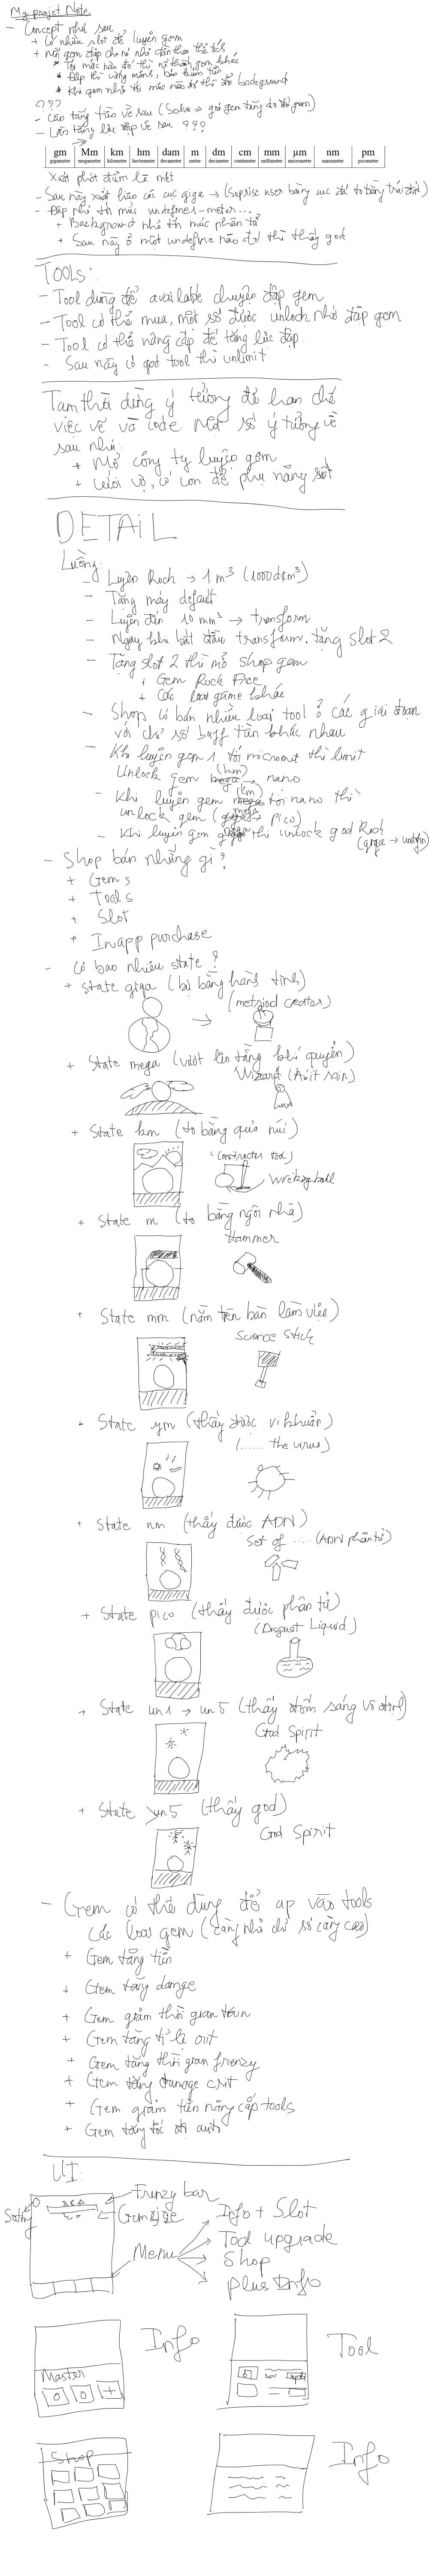 My project Note
- Concept như sau
+ Có nhiều slot để luyện gem
+ Mỗi gem đập cho nó nhỏ dần theo thể tích
* Tới mức nào đó thì nó thành gem khác
* Đập thì văng mảnh, bảo thêm tiền
* Khi gem nhỏ tới mức nào đó thì đổi background
???
- Cần tăng tiền về sau (Solve → giá gem tăng do độ gem)
- Cần tăng lực đập về sau ???
gm Mm km hm dam m dm cm mm µm nm pm
gigameter megameter kilometer hectometer decameter meter decimeter centimeter millimeter micrometer nanometer picometer
Xuất phát điểm là mét
- Sau này xuất hiện các cục giga → (Suprise user bằng cục đá to bằng trái đất)
- Đập nhỏ tới mức undefine1-meter...
+ Background nhỏ tới mức phân tử
+ Sau này ở một undefine nào đó thì thấy god
TOOLS:
- Tool dùng để available chuyện đập gem
- Tool có thể mua, một số được unlock nhờ đập gem
- Tool có thể nâng cấp để tăng lực đập
- Sau này có god tool thì unlimit
Tạm thời dùng ý tưởng để hạn chế
việc vẽ và code. Một số ý tưởng về
sau như:
+ Mở công ty luyện gem
+ cưới vợ, có con để phụ nâng slot
DETAIL
Luồng:
- Luyện Rock → 1 m³ (1000dm³)
- Tặng máy default
- Luyện đến 10 mm³ → transform
- Ngay khi bắt đầu transform. tặng slot 2
- Tặng slot 2 thì mở shop gem
+ Gem Rock Free
+ Các loại game khác
- Shop có bán nhiều loại tool ở các giai đoạn
với chỉ số buff tiền khác nhau
- Khi luyện gem 1 tới micromet thì limit
Unlock gem (hm) → nano
- Khi luyện gem (km) tới nano thì
unlock gem (mega → pico)
- Khi luyện gem mega thì unlock god Rock
(giga → undefin)
- Shop bán những gì?
+ Gems
+ Tools
+ Slot
+ Inapp purchase
- Có bao nhiêu state?
+ State giga (bự bằng hành tinh)
(metriod creator)
+ State mega (vượt lên tầng khí quyển)
Wizard (Axit rain)
+ State km (to bằng quả núi)
(constructor rod)
Wrecking ball
+ State m (to bằng ngôi nhà)
Hammer
+ State mm (nằm trên bàn làm việc)
Science Stick
+ State µm (thấy được vi khuẩn)
(...... the virus)
+ State nm (thấy được ADN)
Set of ..... (ADN phân tử)
+ State pico (thấy được phân tử)
(Disgust Liquid)
+ State un1 → un5 (thấy đốm sáng vô định)
God Spirit
+ State >un5 (thấy god)
God Spirit
- Gem có thể dùng để ap vào tools
Các loại gem (càng nhỏ chỉ số càng cao)
+ Gem tăng tiền
+ Gem tăng damge
+ Gem giảm thời gian
+ Gem tăng tỉ lệ crit
+ Gem tăng thời gian frenzy
+ Gem tăng damage crit
+ Gem giảm tiền nâng cấp tools
+ Gem tăng tốc độ auto
UI:
Setting
Frenzy bar
Gem size
Menu
Info + Slot
Tool upgrade
Shop
plus Info
Info
Master
Tool
Shop
Info